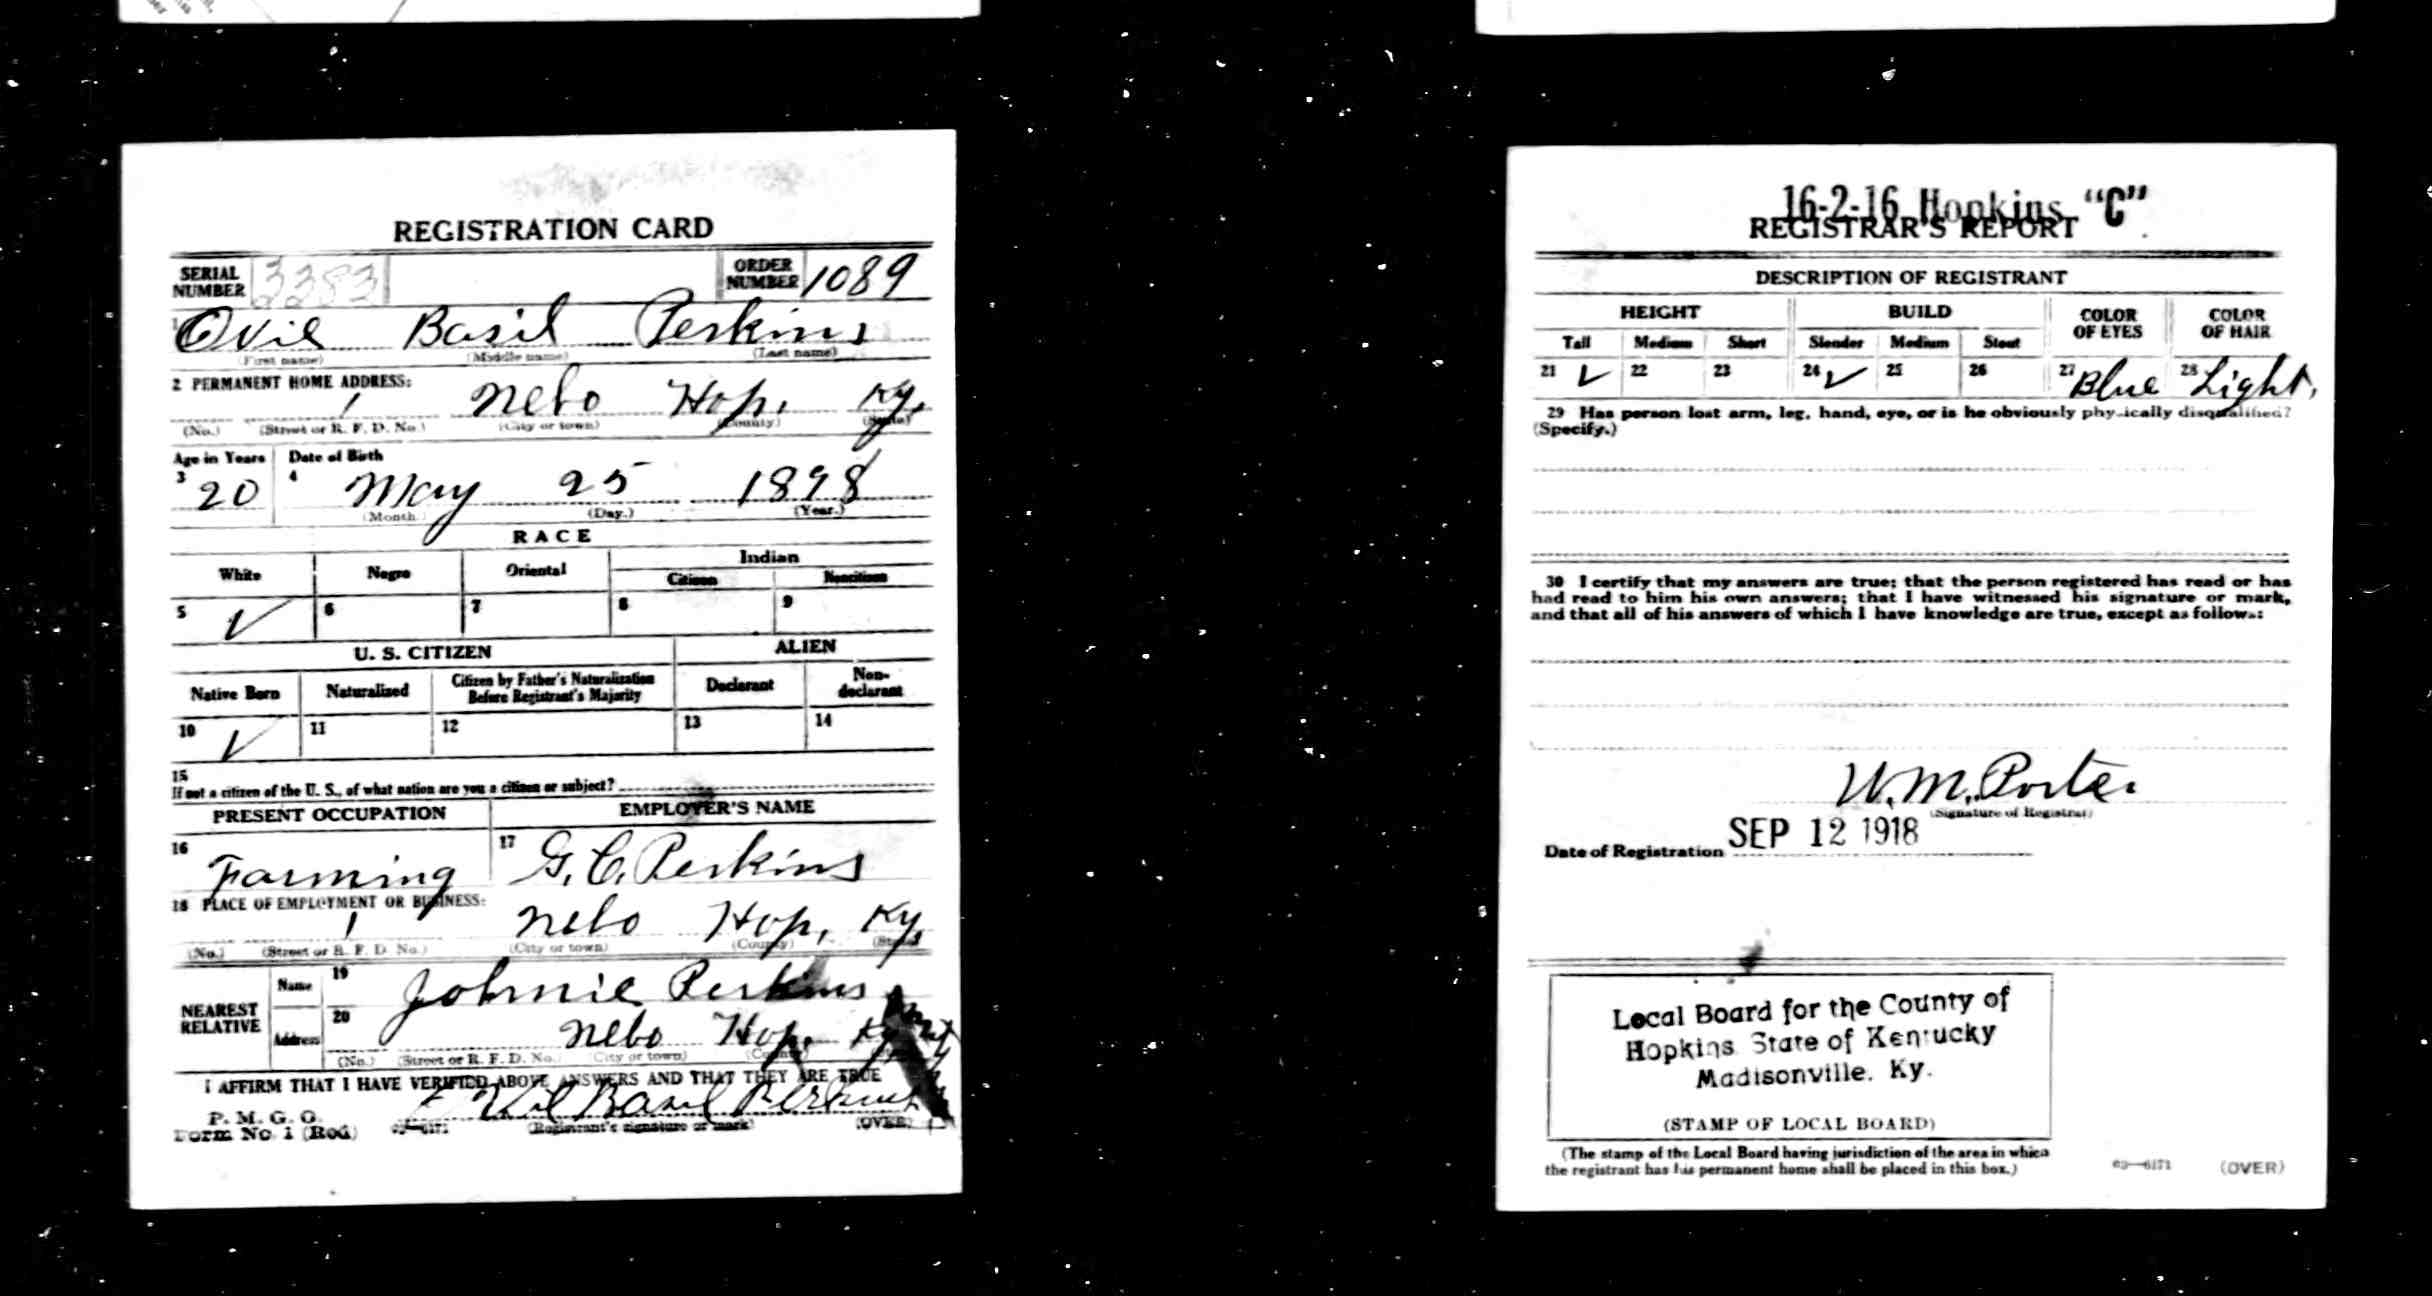 REGISTRATION CARD
SERIAL NUMBER 3383 ORDER NUMBER 1089
1 Ovil Basil Perkins
(First name) (Middle name) (Last name)
2 PERMANENT HOME ADDRESS:
1 Nebo Hop. Ky.
(No.) (Street or R. F. D. No.) (City or town) (County) (State)
Age in Years Date of Birth
3 20 4 May 25 1898
(Month.) (Day.) (Year.)
RACE
White Negro Oriental Indian
Citizen Noncitizen
5 ✓ 6 7 8 9
U. S. CITIZEN ALIEN
Native Born Naturalized Citizen by Father's Naturalization Before Registrant's Majority Declarant Non-declarant
10 ✓ 11 12 13 14
15
If not a citizen of the U. S., of what nation are you a citizen or subject?
PRESENT OCCUPATION EMPLOYER'S NAME
16 Farming 17 G. C. Perkins
18 PLACE OF EMPLOYMENT OR BUSINESS:
1 Nebo Hop. Ky.
(No.) (Street or R. F. D. No.) (City or town) (County) (State)
NEAREST RELATIVE
Name 19 Johnie Perkins
Address 20 Nebo Hop. Ky
(No.) (Street or R. F. D. No.) (City or town) (County)
I AFFIRM THAT I HAVE VERIFIED ABOVE ANSWERS AND THAT THEY ARE TRUE
P. M. G. O.
Form No. 1 (Red) Ovil Basil Perkins
03—6171 (Registrant's signature or mark) (OVER)
16-2-16 Hopkins "C"
REGISTRAR'S REPORT
DESCRIPTION OF REGISTRANT
HEIGHT BUILD COLOR OF EYES COLOR OF HAIR
Tall Medium Short Slender Medium Stout
21 ✓ 22 23 24 ✓ 25 26 27 Blue 28 Light.
29 Has person lost arm, leg, hand, eye, or is he obviously physically disqualified?
(Specify.)
30 I certify that my answers are true; that the person registered has read or has
had read to him his own answers; that I have witnessed his signature or mark,
and that all of his answers of which I have knowledge are true, except as follows:
W. M. Porter
(Signature of Registrar)
Date of Registration SEP 12 1918
Local Board for the County of
Hopkins State of Kentucky
Madisonville, Ky.
(STAMP OF LOCAL BOARD)
(The stamp of the Local Board having jurisdiction of the area in which
the registrant has his permanent home shall be placed in this box.)
03—6171 (OVER)